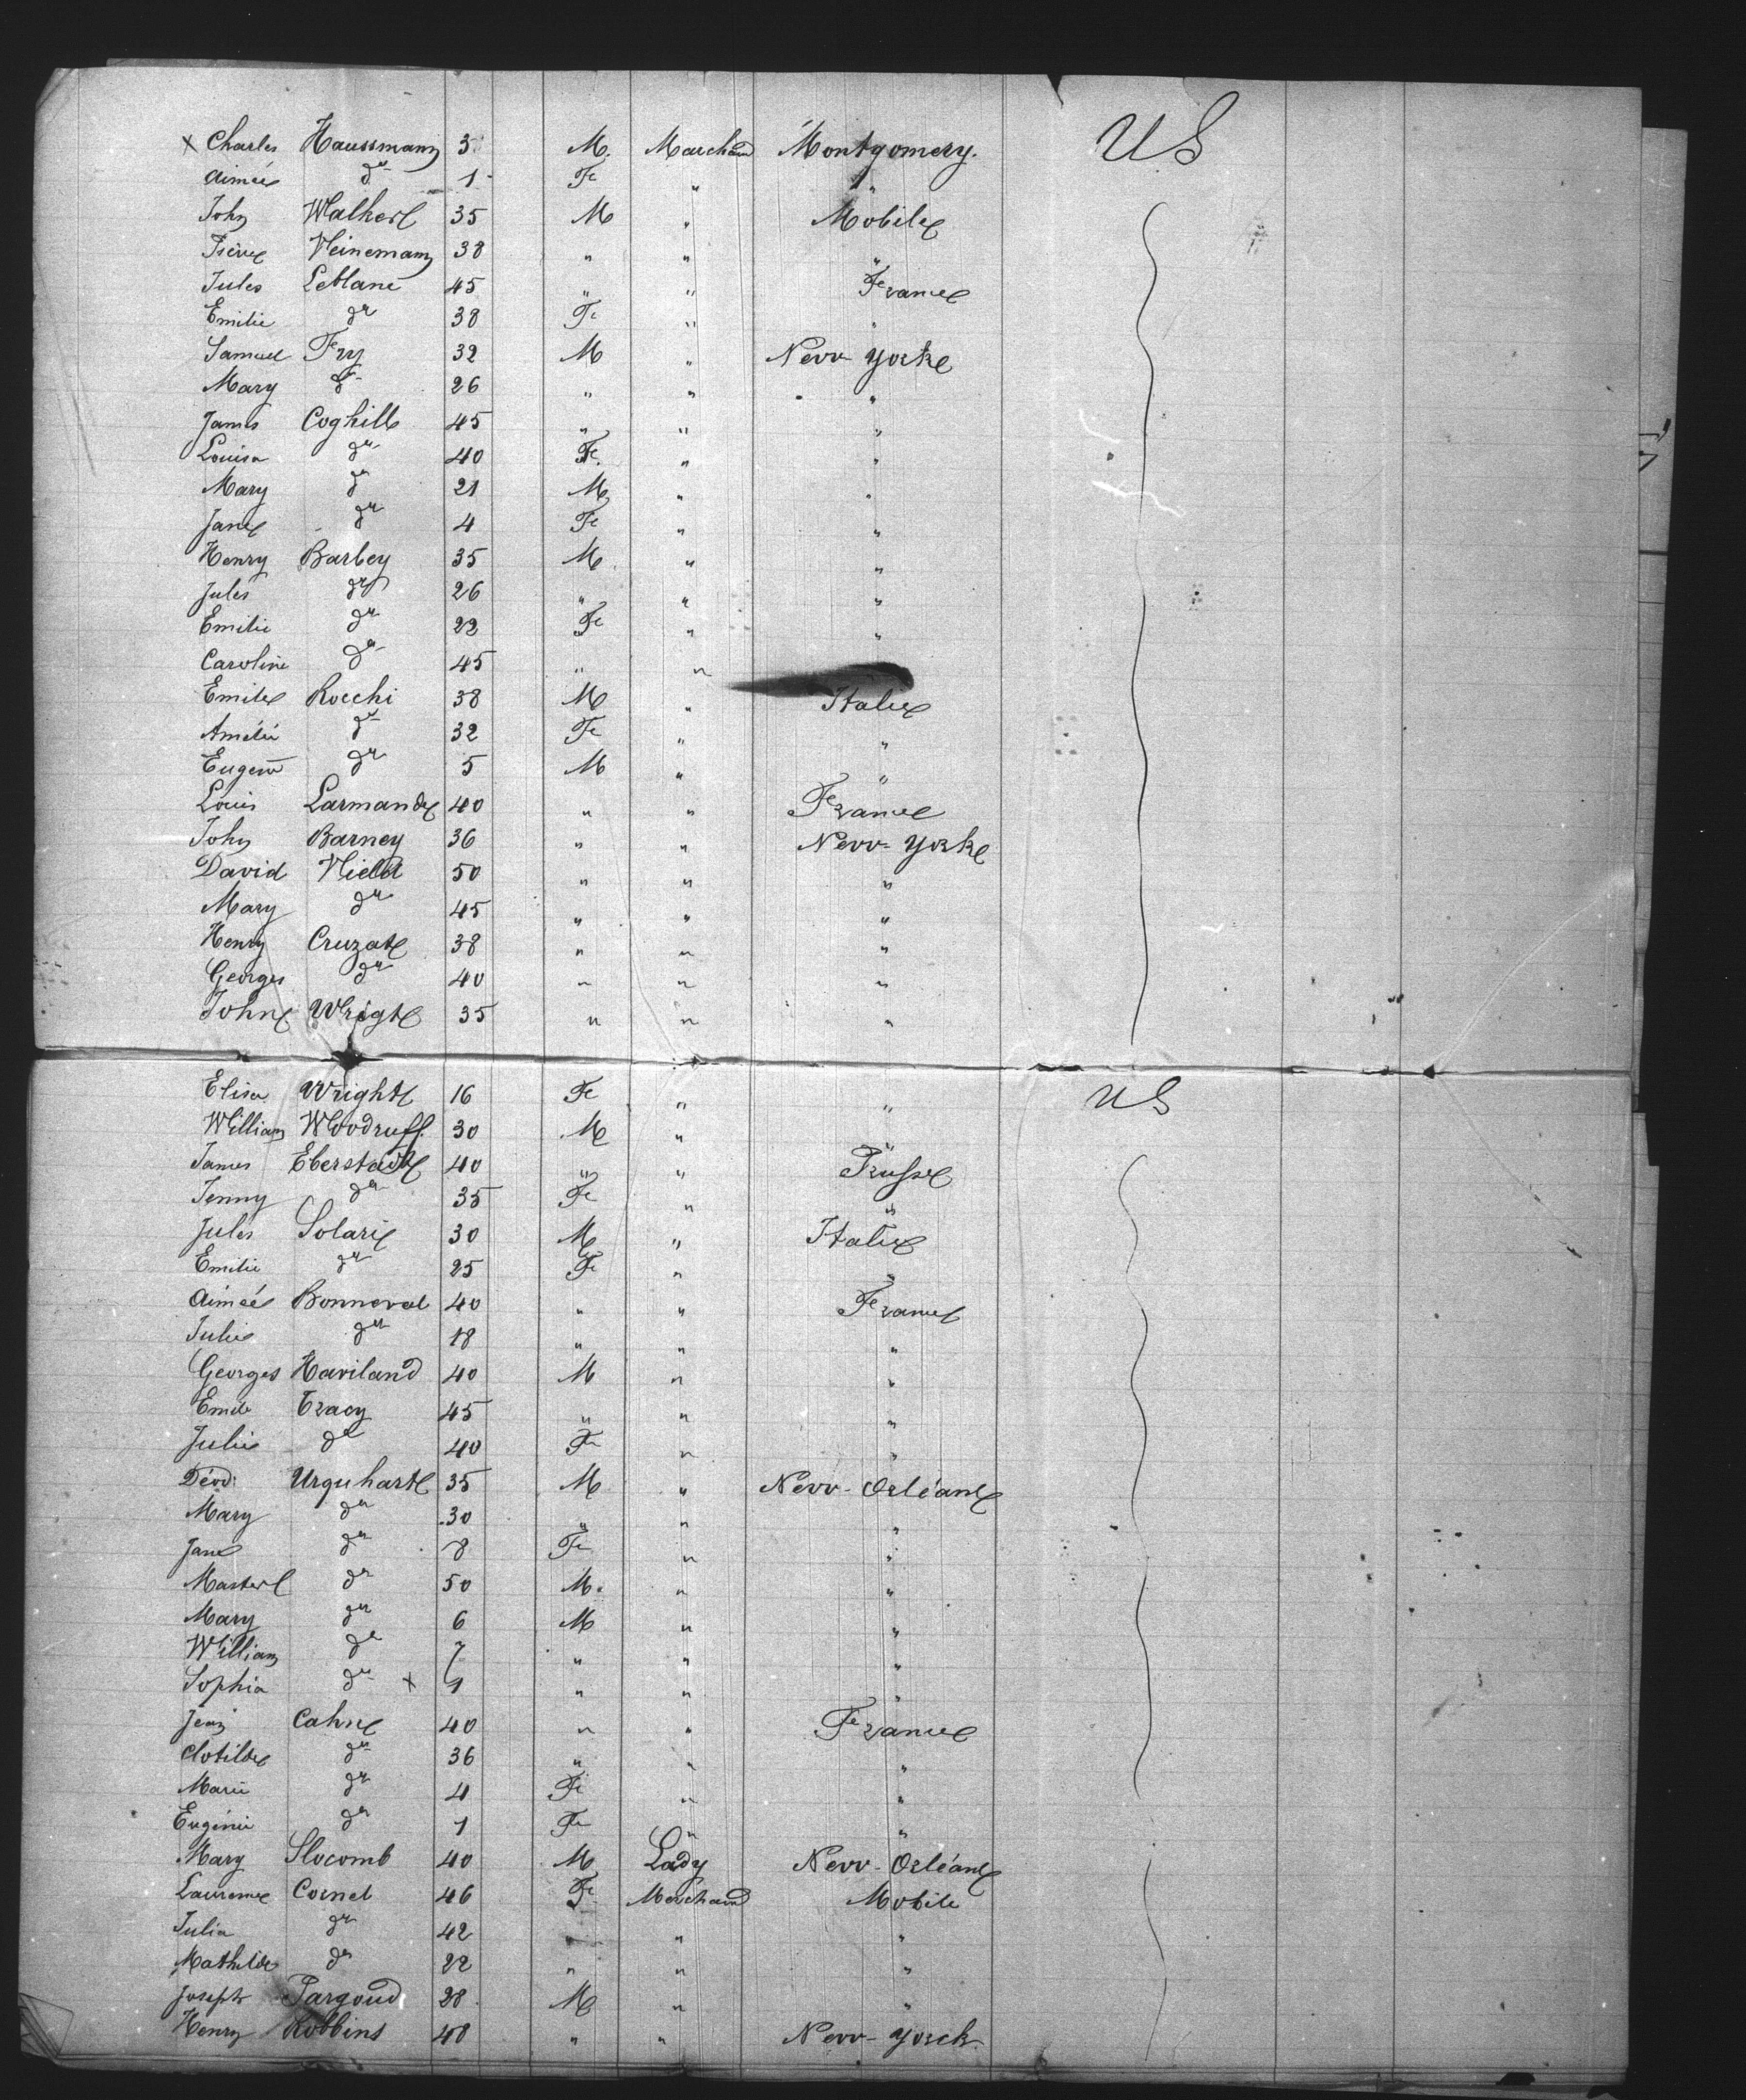 x Charles Haussmann 3 M. Marchand Montgomery. US
Aimée do 1 Fe " "
John Walker 35 M " Mobile
Heinemann 38 " " "
Jules Leblanc 45 " " France
Emilie do 38 Fe " "
Samuel Fry 32 M " New Yorke
Mary do 26 " " "
James Coghill 45 " " "
Louisa do 40 Fe. " "
Mary do 21 M " "
Jane do 4 Fe " "
Henry Barbey 35 M " "
Jules do 26 " " "
Emilie do 22 Fe " "
Caroline do 45 " "
Emile Rocchi 38 M " Italie
Amélie do 32 Fe " "
Eugene do 5 M " "
Louis Larmande 40 " " France
John Barney 36 " " New-Yorke
David 50 " " "
Mary do 45 " " "
Henry Cruzat 38 " " "
Georges do 40 " " "
John Wrigt 35 " " "
Elisa Wright 16 Fe " " US
William Woodruff. 30 M " "
James Eberstadt 40 " " Prusse
Jenny do 35 Fe " "
Jules Solari 30 M " Italie
Emilie do 25 Fe " "
Aimée Bonneval 40 " " France
Julie do 18 " " "
Georges Haviland 40 M " "
Emile Tracy 45 " " "
Julie do 40 Fe " "
Déod: Urquhart 35 M " New-Orléans
Mary do 30 " " "
Jane do 8 Fe " "
Master do 50 M. " "
Mary do 6 M " "
William do 7 " " "
Sophia do x " " "
Jean Cahn 40 " " France
Clotilde do 36 " " "
Marie do 4 Fe " "
Eugénie do 1 Fe " "
Mary Slocomb 40 M Lady New-Orléans
Laurence Cornet 46 Fe Marchand Mobile
Julia do 42 " "
Mathilde do 22 " " "
Joseph Pargoud 28 M " "
Henry Robbins 48 " " New-Yorck